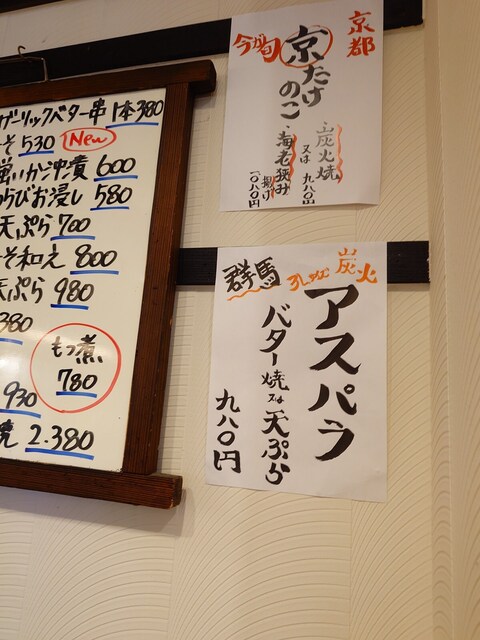 ガーリックバター串 1本380
そ 530 New
蛍いか沖漬 600
わらびお浸し 580
天ぷら 700
そ和え 800
天ぷら 980
380
もつ煮
780
930
焼 2.380
京都
今が旬
京たけのこ
・炭火焼
又は 九八〇円
・海老挟み
揚げ
一〇八〇円
群馬
炭火
アスパラ
バター焼又は天ぷら
九八〇円